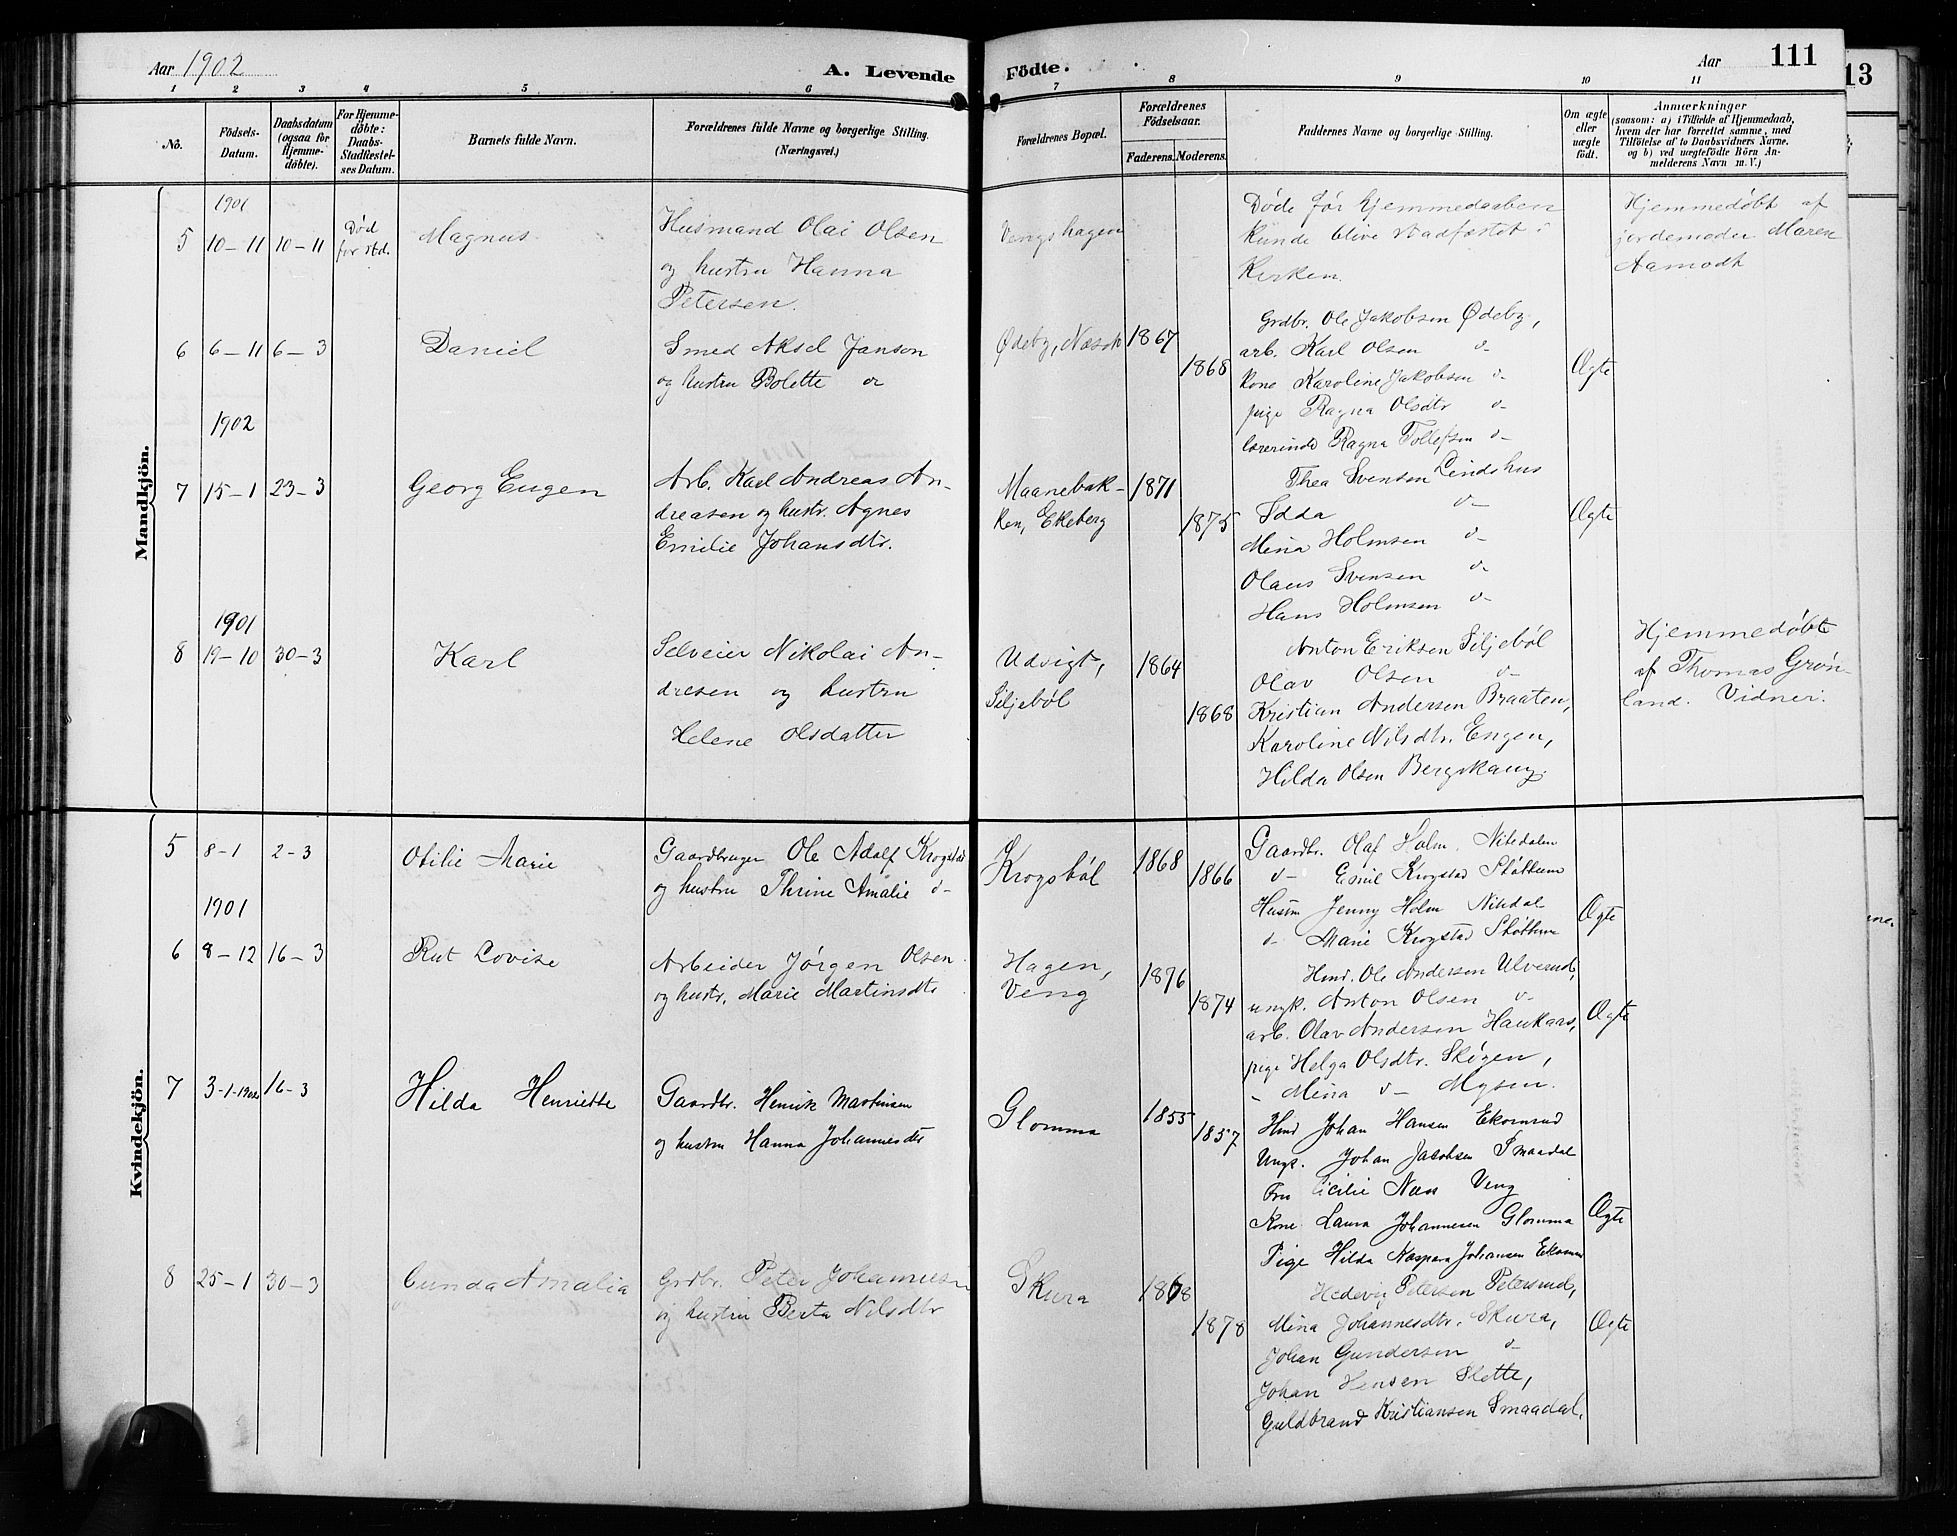 Aar 1902 A. Levende Födte. Aar 111
13
1 2 3 4 5 6 7 8 9 10 11
No.
Födsels-
Datum.
Daabsdatum
(ogsaa for
Hjemme-
døbte).
For Hjemme-
døbte:
Daabs-
Stadfæstel-
ses Datum.
Barnets fulde Navn.
Forældrenes fulde Navne og borgerlige Stilling.
(Næringsvei.)
Forældrenes Bopæl.
Forældrenes
Födselsaar.
Faderens. Moderens.
Faddernes Navne og borgerlige Stilling.
Om ægte
eller
uægte
født.
Anmærkninger
(saasom: a) i Tilfælde af Hjemmedaab,
hvem der har forrettet samme, med
Tilføielse af to Daabsvidners Navne.
og b) ved uægtefödte Börn An-
melderens Navn m. V.)
Mandkjön.
1901
5 10-11 10-11
Død
før std.
Magnus
Husmand Olai Olsen
og hustru Hanna
Petersen.
Vengshagen
Døde før hjemmedaaben
kunde blive stadfæstet i
Kirken.
Hjemmedøbt af
jordemoder Maren
Aamodt
6 6-11 6-3
Daniel
Smed Aksel Janson
og hustru Bolette
Ødeby, Næsok
1867
1868
Grdbr. Ole Jakobsen Ødeby,
arb. Karl Olsen d-
kone Karoline Jakobsen d-
pige Ragna Olsdtr d-
lærerinde Ragna Tollefsen d-
Ægte
1902
7 15-1 23-3
Georg Eugen
Arb. Karl Andreas An-
dreasen og hustr. Agnes
Emilie Johansdtr.
Maanebak-
ken, Ekeberg
1871
1875
Thea Svensen Lindshus
Idda d-
Mina Holmsen d-
Olaus Svensen d-
Hans Holmsen d-
Ægte
1901
8 19-10 30-3
Karl
Selveier Nikolai An-
dresen og hustru
Helene Olsdatter
Udsigt,
Siljebøl
1864
1868
Anton Eriksen Siljebøl
Olav Olsen d-
Kristian Andersen Braaten,
Karoline Nilsdtr. Engen,
Hilda Olsen Bergskaug.
Hjemmedøbt
af Thomas Grøn-
land. Vidner:
Kvindekjön.
5 8-1 2-3
Otilie Marie
Gaardbruger Ole Adolf Krogstad
og hustru Thrine Amalie d-
Krogsbøl
1868
1866
Gaardbr. Olaf Holm. Nitedalen
d- Emil Krogstad Skøttum
Hustru Jenny Holm Nitedal
d- Marie Krogstad Skøttum
Ægte
1901
6 8-12 16-3
Rut Lovise
Arbeider Jørgen Olsen
og hustr. Marie Martinsdtr
Hagen,
Veng
1876
1874
Hmd. Ole Andersen Ulverud,
ungk. Anton Olsen d-
arb. Olav Andersen Haukaas,
pige Helga Olsdtr. Skogen,
- Mina d- Mysen.
Ægte
7 3-1-1902 16-3
Hilda Henriette
Gaardbr. Henrik Martinsen
og hustru Hanna Johannesdtr
Glomma
1855
1857
Hmd Johan Hansen Ekornrud
Ungk. Johan Jacobsen Smaadal
Fru Cicilie Næss Veng
Kone Laura Johannesen Glomma
Pige Hilda Kaspara Johansen Ekornr
Ægte
8 25-1 30-3
Gunda Amalia
Grdbr. Peter Johannesen
og hustru Berta Nilsdtr
Skura
1868
1878
Hedevig Petersen Petersrud,
Mina Johannesdtr. Skura,
Johan Gundersen d-
Johan Hensen Slette,
Guldbrand Kristiansen Smaadal.
Ægte